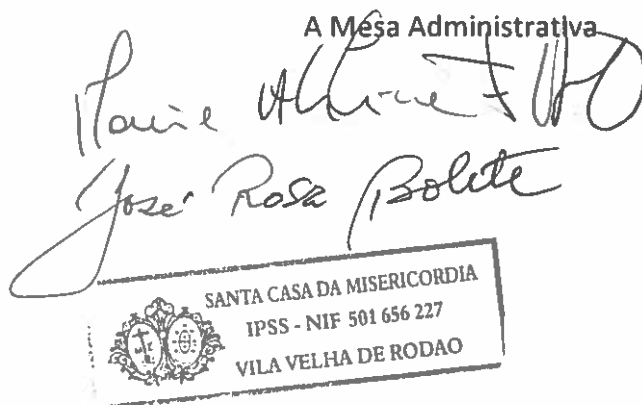 A Mesa Administrativa
Maria
José Rosa Bolete
SANTA CASA DA MISERICORDIA
IPSS - NIF 501 656 227
VILA VELHA DE RODAO